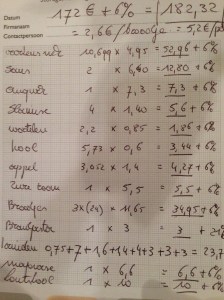 Datum
172 € + 6% = 182,32
Firmanaam
Contactpersoon
= 2,6€ / broodje = 5,2€/p
10,699 x 4,95 = 52,96 + 6%
saus 2 x 6,40 = 12,80 + 6%
1 x 7,3 = 7,3 + 6%
4 x 1,40 = 5,6 + 6%
wortelen 2,2 x 0,85 = 1,86 + 6%
kool 5,73 x 0,6 = 3,44 + 6%
appel 3,052 x 1,4 = 4,27 + 6%
zure room 1 x 5,5 = 5,5 + 6%
Broodjes 3x(24) x 11,65 = 34,95 + 6%
1 x 3 = 3 +
kruiden 0,75+7+1,6+14+4+3+3+3 = 23,7
mayonaise 1 x 6,6 = 6,6 + 6%
houtskool 1 x 10 = 10 + 6%